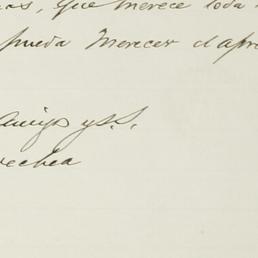 que merece toda
pueda merecer el apre
amigo y S.S.